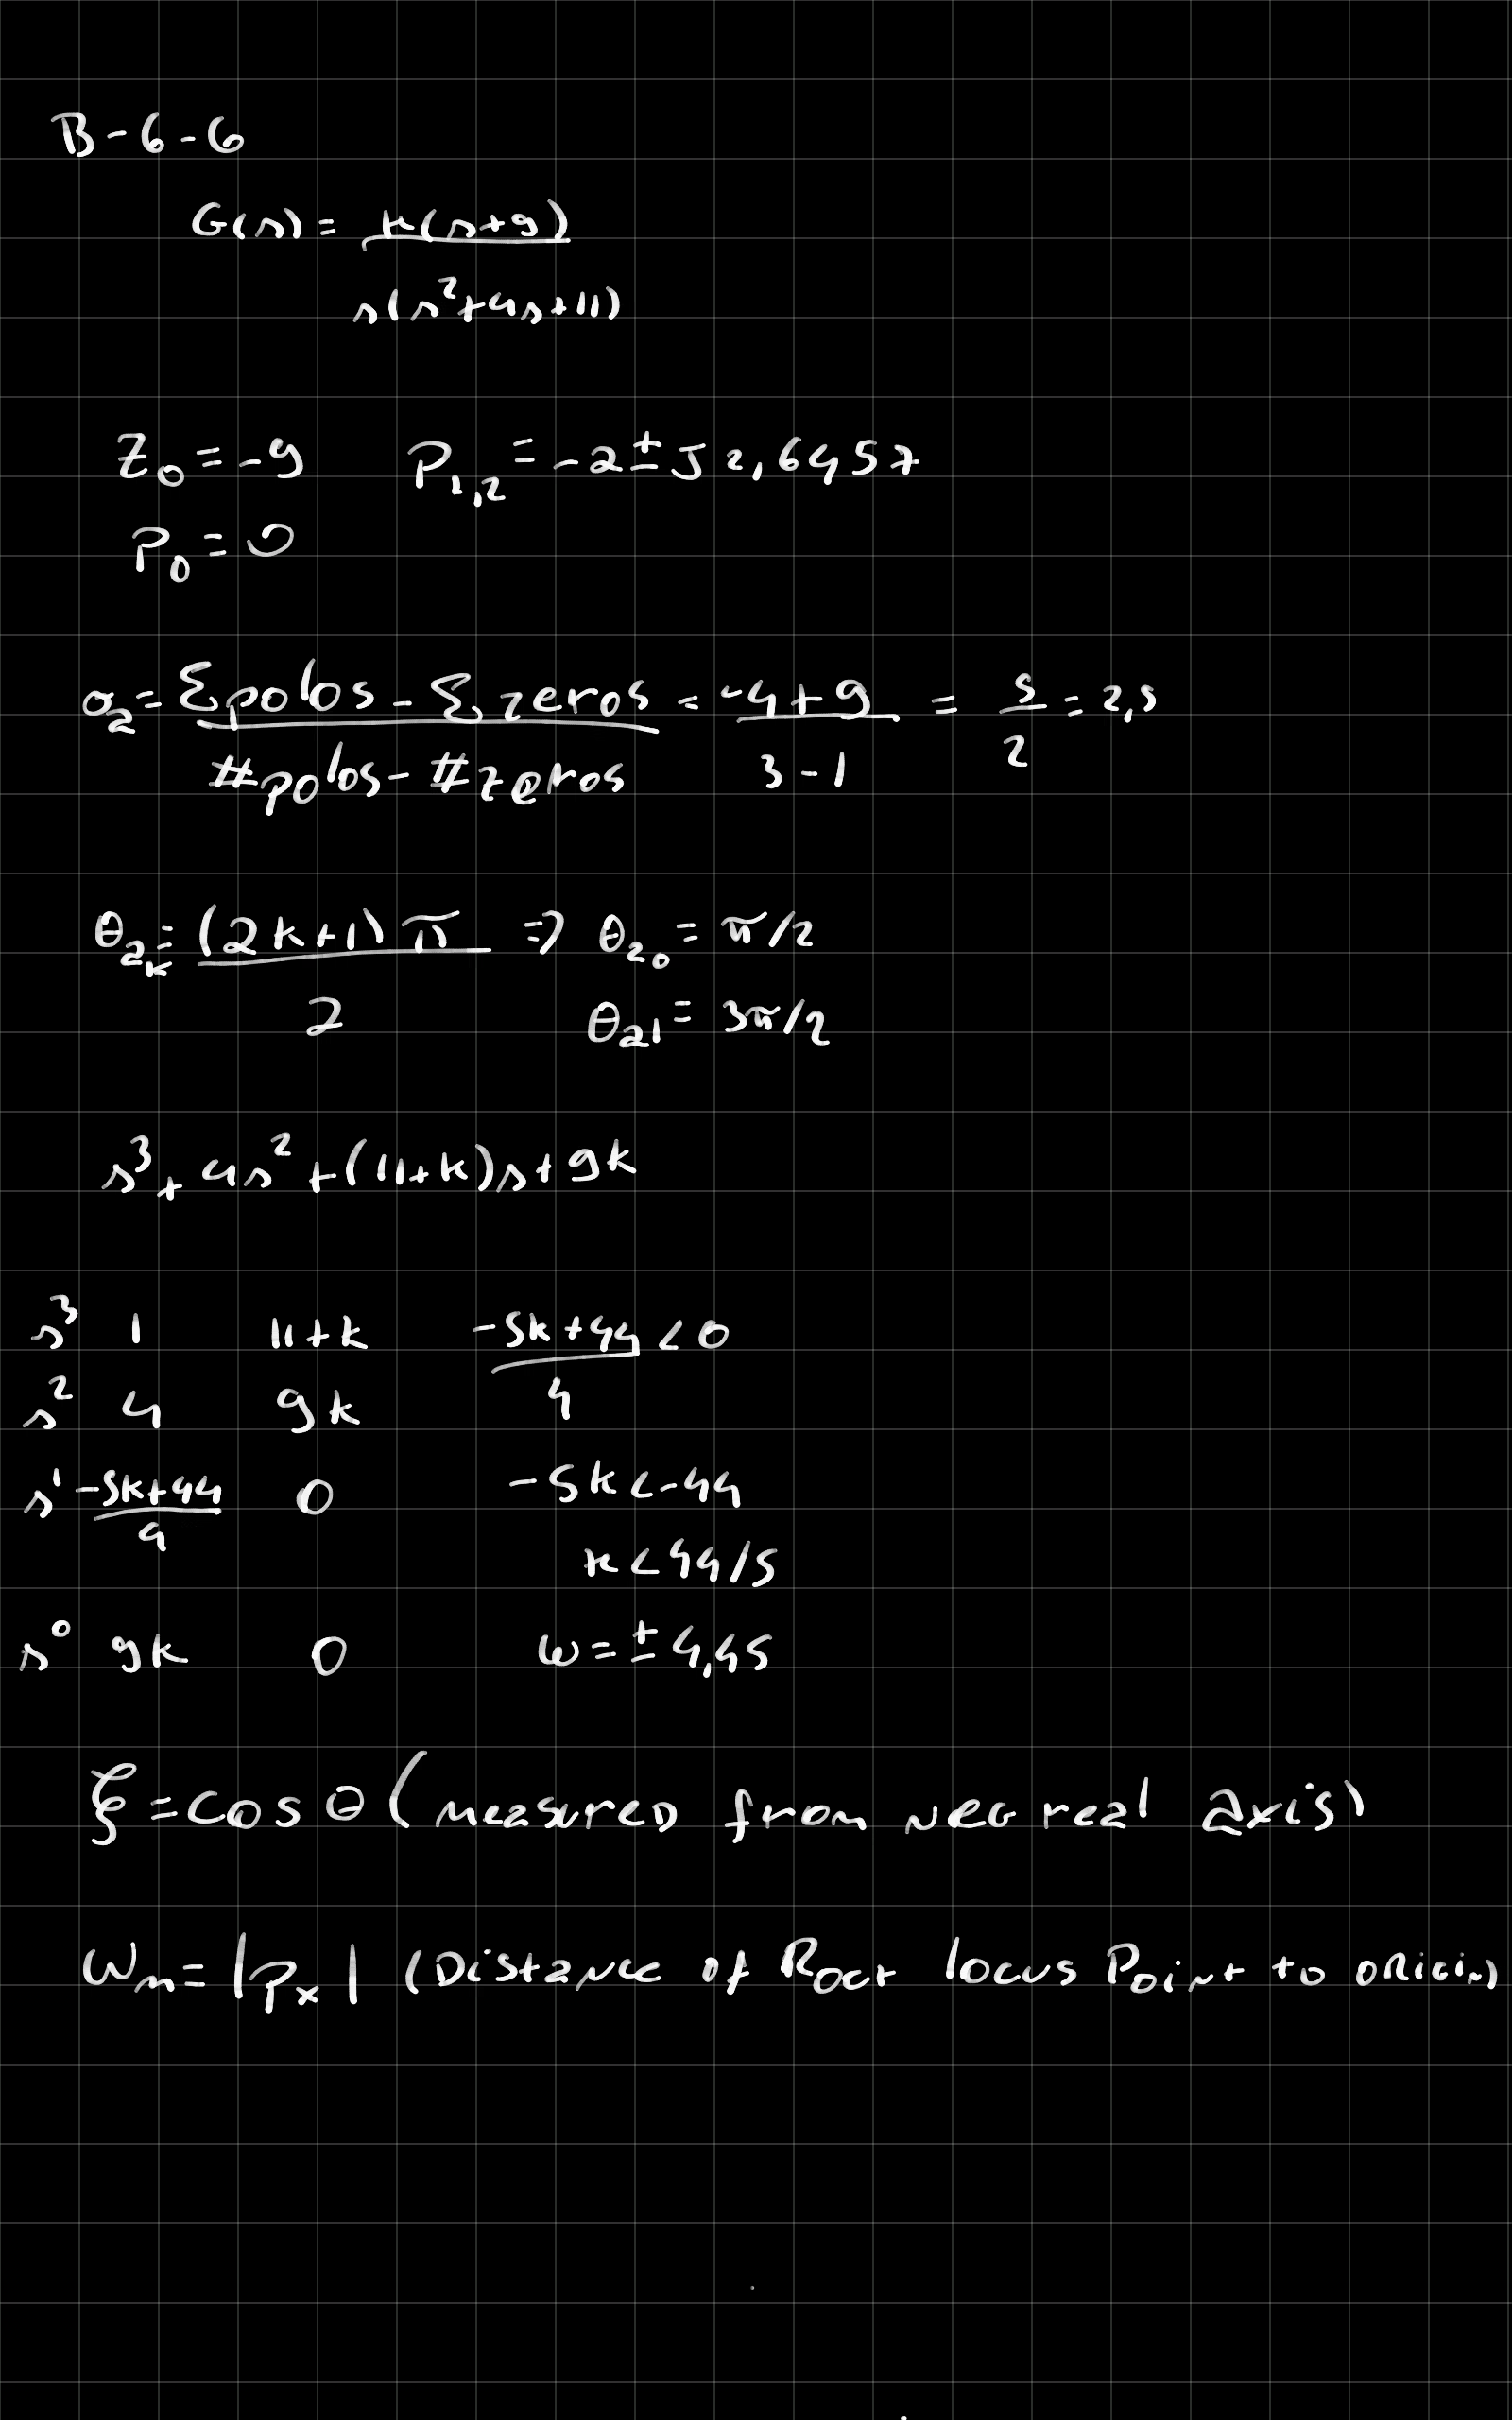 B-6-6
G(s) = K(s+9)
s(s²+4s+11)
Z₀ = -9 P₁,₂ = -2 ± J 2,6457
P₀ = 0
σa = Σpolos - Σzeros = -4+9 = 5 = 2,5
#polos - #zeros 3-1 2
θaₖ = (2k+1)π => θa₀ = π/2
2 θa1 = 3π/2
s³ + 4s² + (11+k)s + 9k
s³ 1 11+k -5k+44 < 0
s² 4 9k 4
s¹ -5k+44 0 -5k < -44
4 k < 44/5
s⁰ 9k 0 ω = ± 4,45
ξ = cos θ (measured from neg real axis)
ωn = |Px| (Distance of Root locus Point to origin)